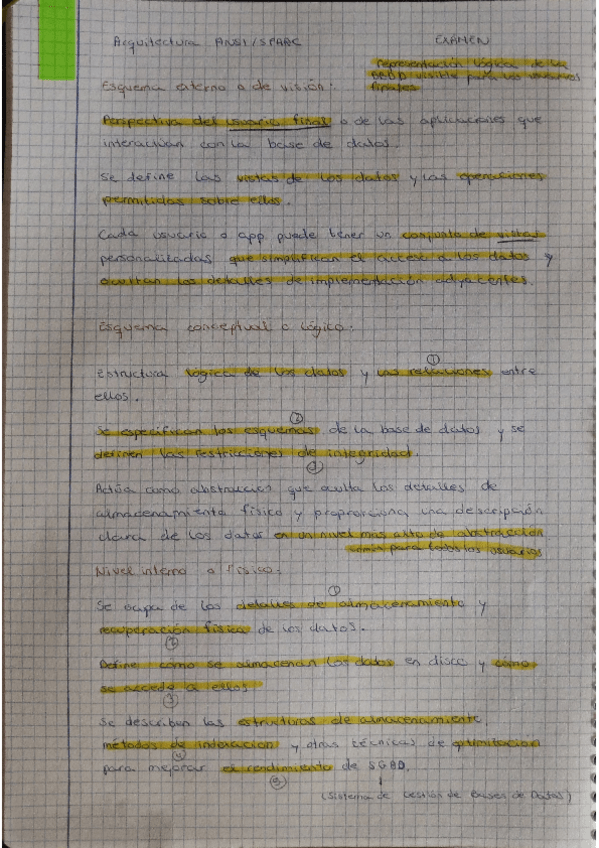 Arquitectura ANSI/SPARC EXAMEN
representación lógica de la
BBDD visible para los usuarios
finales
Esquema externo o de visión:
Perspectiva del usuario final o de las aplicaciones que
interactúan con la base de datos.
Se define las vistas de los datos y las operaciones
permitidas sobre ellos.
Cada usuario o app puede tener un conjunto de vistas
personalizadas que simplifican el acceso a los datos y
ocultan los detalles de implementación adyacentes.
Esquema conceptual o lógico:
①
Estructura lógica de los datos y las relaciones entre
ellos.
②
Se especifican los esquemas de la base de datos y se
definen las restricciones de integridad.
Actúa como abstracción que oculta los detalles de
almacenamiento físico y proporciona una descripción
clara de los datos en un nivel más alto de abstracción
común para todos los usuarios
Nivel interno o físico:
①
Se ocupa de los detalles de almacenamiento y
recuperación física de los datos.
②
Define cómo se almacenan los datos en disco y cómo
se accede a ellos
③
Se describen las estructuras de almacenamiento,
métodos de indexación y otras técnicas de optimización
④
para mejorar el rendimiento de SGBD.
⑤
(Sistema de Gestión de Bases de Datos)